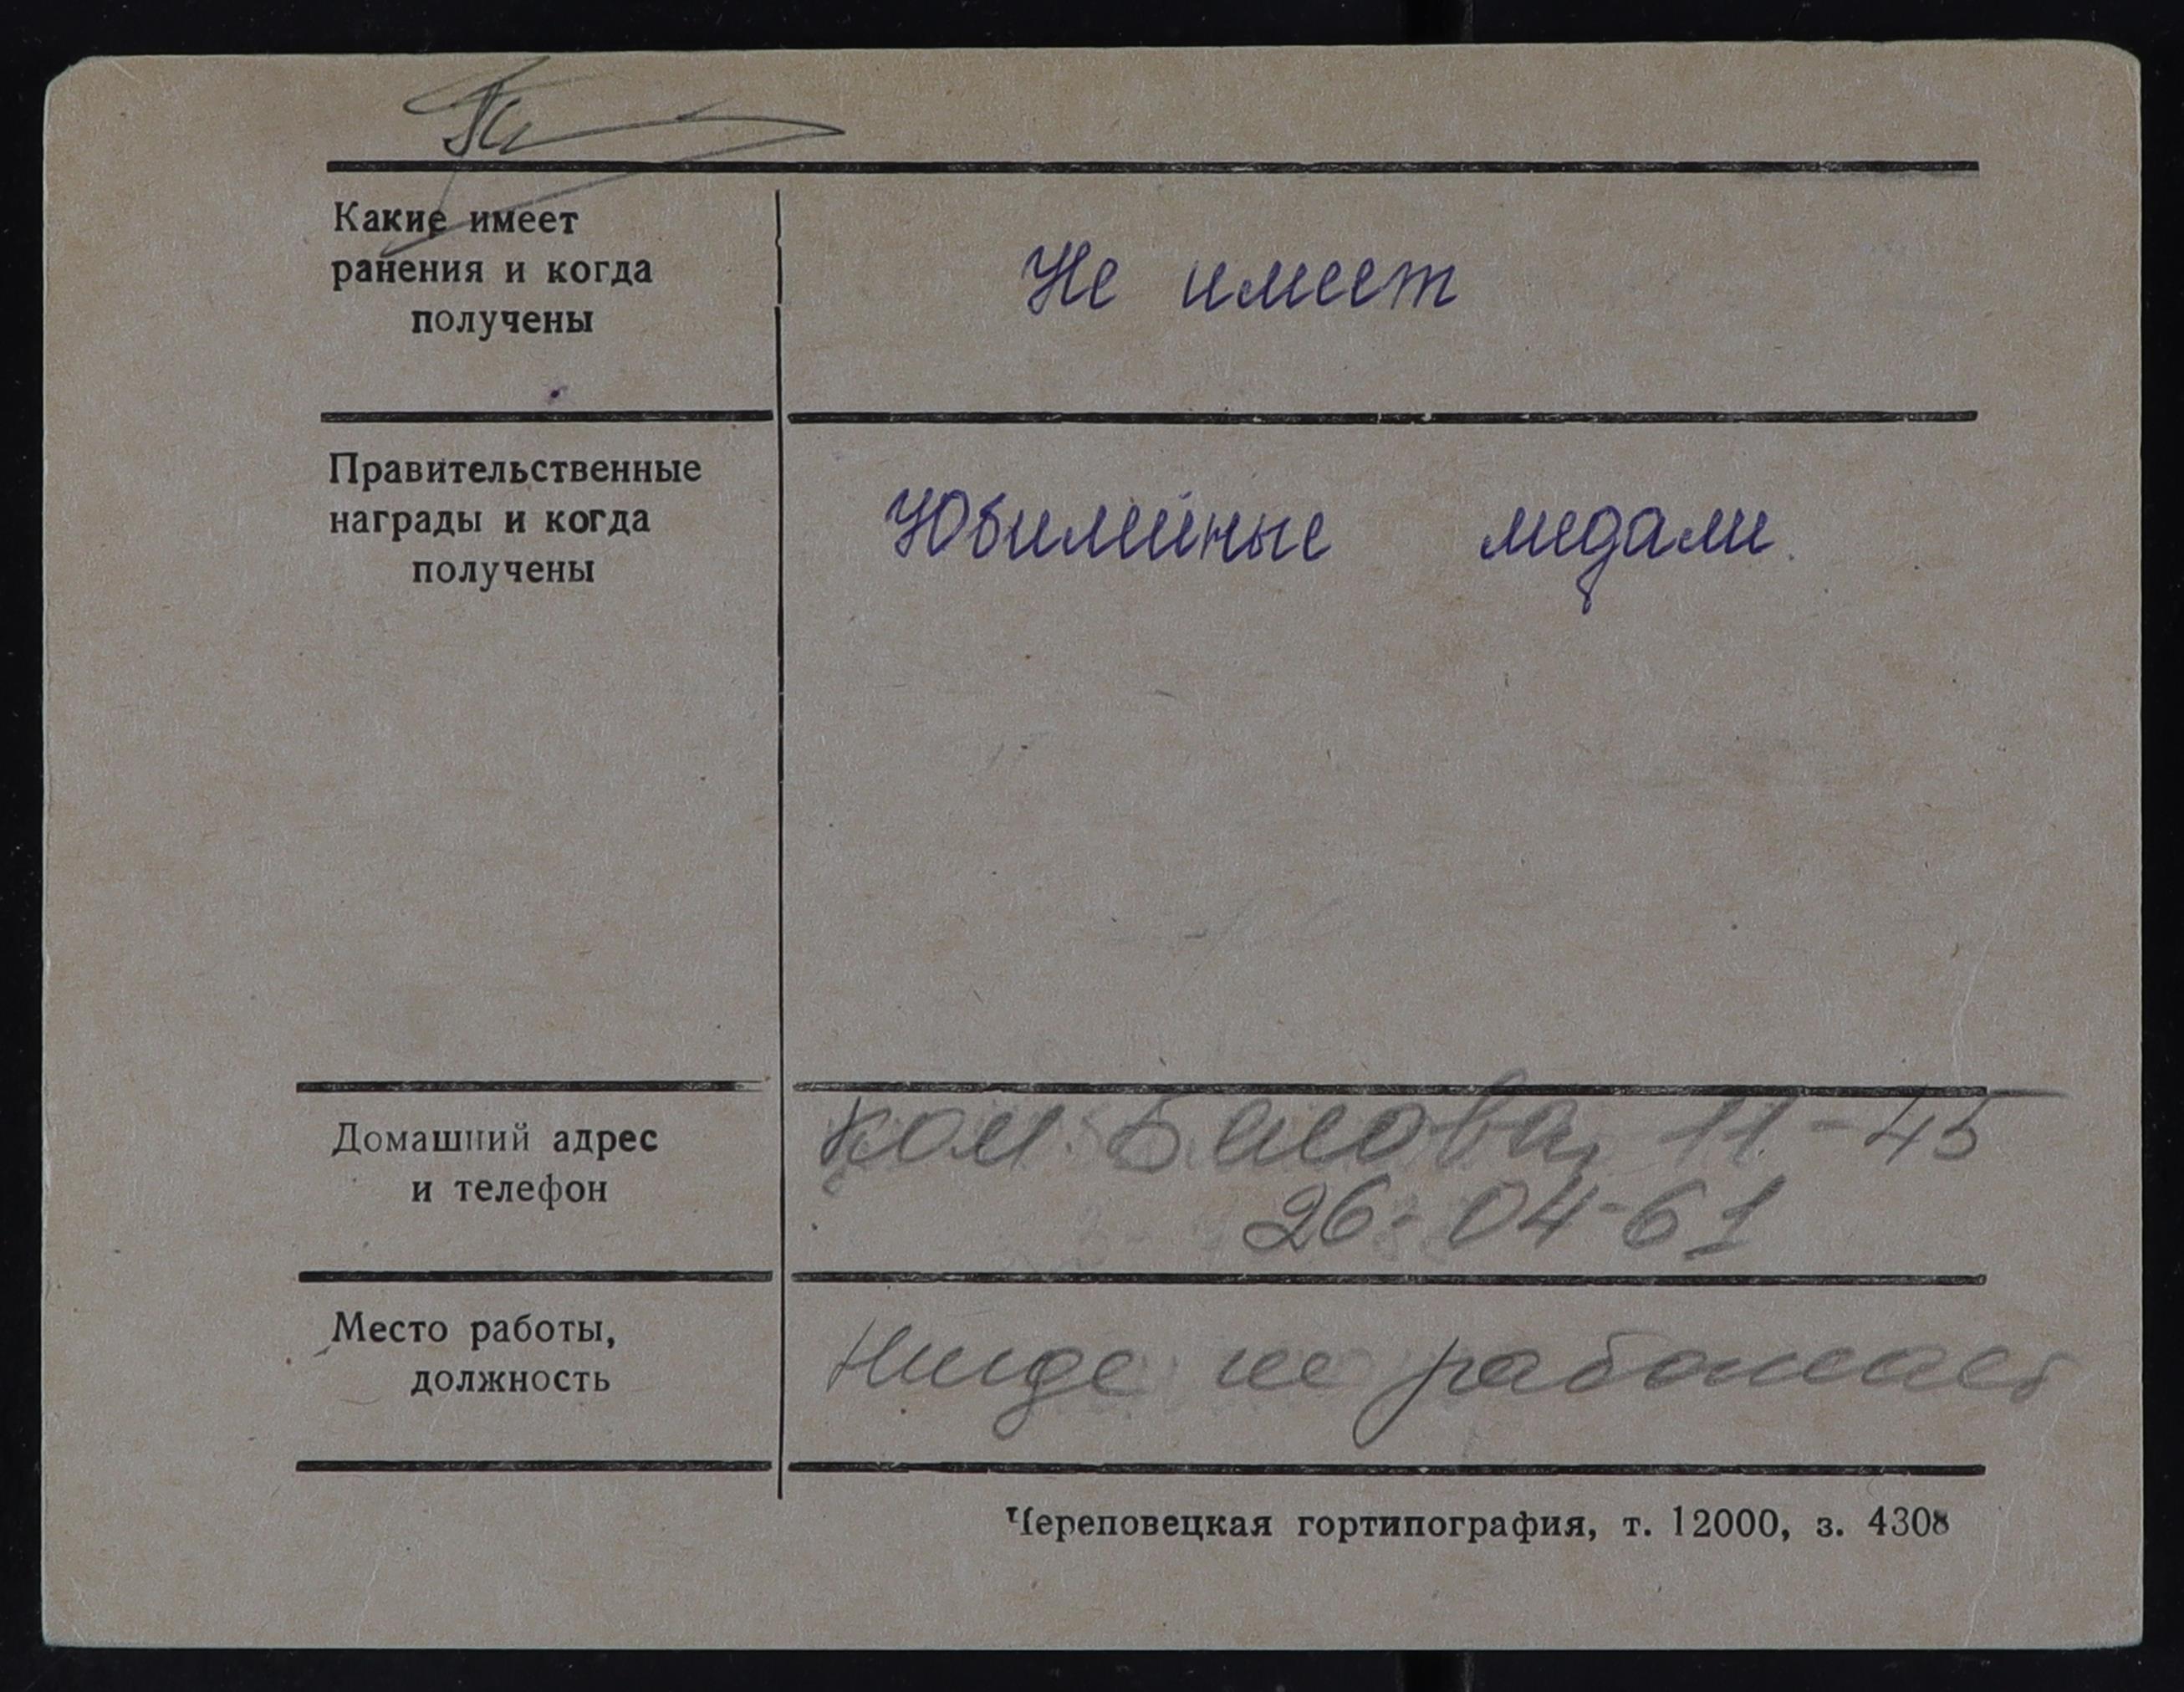 Какие имеет
ранения и когда
получены
Не имеет
Правительственные
награды и когда
получены
Юбилейные медали.
Домашний адрес
и телефон
ком. Белова, 11-45
26-04-61
Место работы,
должность
Нигде не работает
Череповецкая гортипография, т. 12000, з. 4308